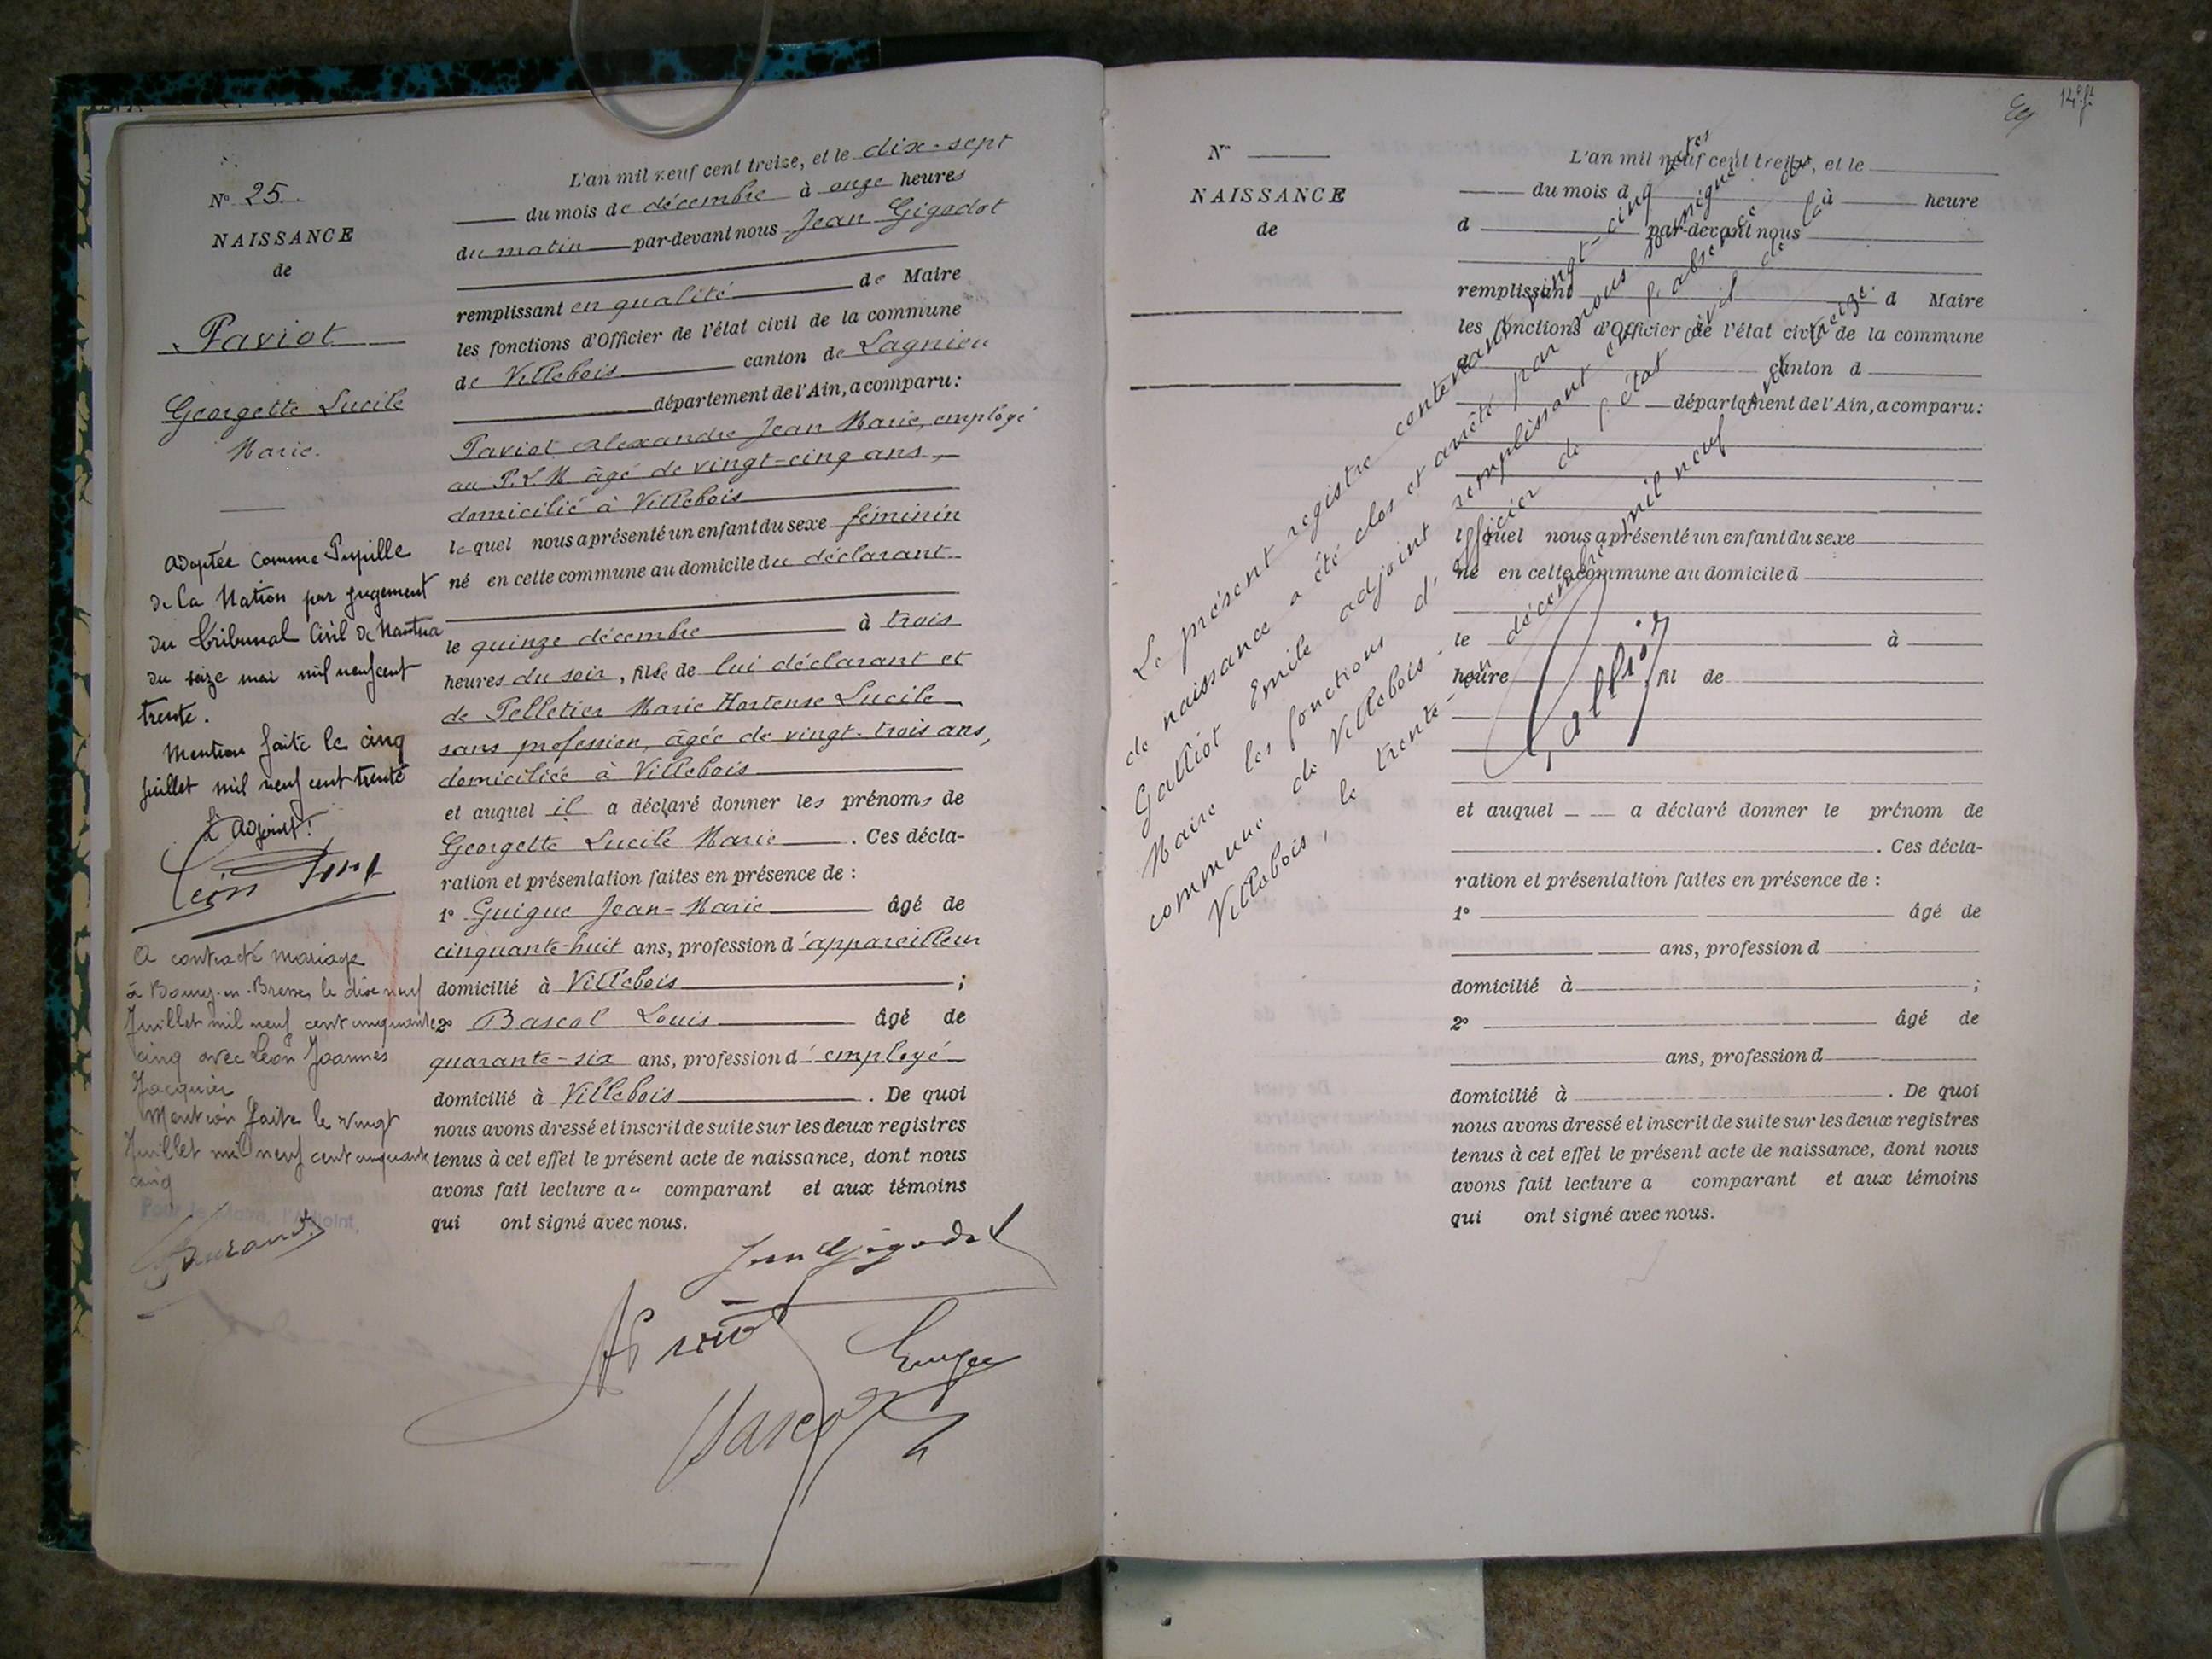 N° 25.
NAISSANCE
de
Paviot
Georgette Lucile
Marie.
Adoptée comme Pupille
de la Nation par jugement
du Tribunal Civil de Nantua
du seize mai mil neuf cent
trente.
Mention faite le cinq
juillet mil neuf cent trente
L'adjoint:
Léon
A contracté mariage
à Bourg-en-Bresse, le dix neuf
Juillet mil neuf cent cinquante
cinq avec Léon Joannès
Jacquier
Mention faite le vingt
Juillet mil neuf cent cinquante
cinq
Pour le Maire, l'Adjoint,
L'an mil neuf cent treize, et le dix-sept
du mois de décembre à onze heures
du matin par-devant nous Jean Gigodot
remplissant en qualité de Maire
les fonctions d'Officier de l'état civil de la commune
de Villebois canton de Lagnieu
département de l'Ain, a comparu:
Paviot Alexandre Jean Marie, employé
au P.L.M âgé de vingt-cinq ans,
domicilié à Villebois
lequel nous a présenté un enfant du sexe féminin
né en cette commune au domicile du déclarant
le quinze décembre à trois
heures du soir, fille de lui déclarant et
de Pelletier Marie Hortense Lucile
sans profession, âgée de vingt-trois ans,
domiciliée à Villebois
et auquel il a déclaré donner les prénoms de
Georgette Lucile Marie. Ces décla-
ration et présentation faites en présence de :
1° Guigue Jean-Marie âgé de
cinquante-huit ans, profession d'appareilleur
domicilié à Villebois ;
2° Bascol Louis âgé de
quarante-six ans, profession d'employé
domicilié à Villebois. De quoi
nous avons dressé et inscrit de suite sur les deux registres
tenus à cet effet le présent acte de naissance, dont nous
avons fait lecture au comparant et aux témoins
qui ont signé avec nous.
Jean Gigodot
Guigue
Bascol
14e ft
N°
NAISSANCE
de
L'an mil neuf cent treize, et le
du mois d à heure
d par-devant nous
remplissant d Maire
les fonctions d'Officier de l'état civil de la commune
d canton d
département de l'Ain, a comparu:
lequel nous a présenté un enfant du sexe
né en cette commune au domicile d
le à
heure fil de
et auquel a déclaré donner le prénom de
. Ces décla-
ration et présentation faites en présence de :
1° âgé de
ans, profession d
domicilié à ;
2° âgé de
ans, profession d
domicilié à . De quoi
nous avons dressé et inscrit de suite sur les deux registres
tenus à cet effet le présent acte de naissance, dont nous
avons fait lecture a comparant et aux témoins
qui ont signé avec nous.
Le présent registre contenant vingt-cinq actes
de naissance a été clos et arrêté par nous soussigné
Galliot Emile adjoint remplissant en l'absence du
Maire les fonctions d'officier de l'état civil de la
commune de Villebois.
Villebois, le trente-un décembre mil neuf cent treize.
Galliot